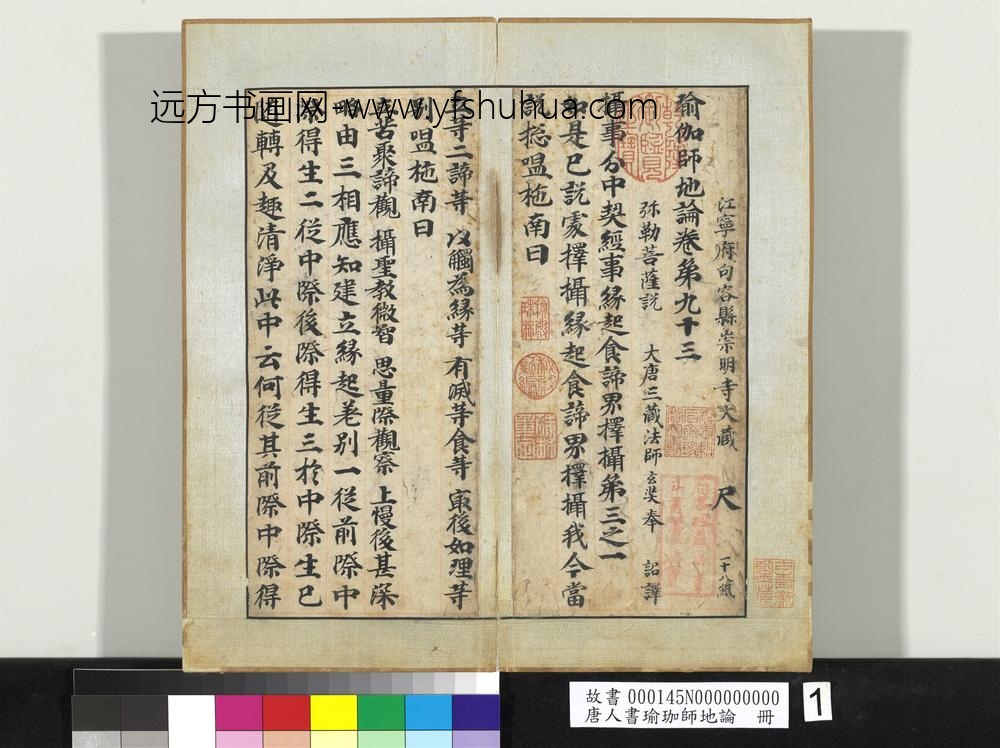 江寧府句容縣崇明寺大藏 尺 一十八紙
瑜伽師地論卷第九十三
弥勒菩薩説 大唐三藏法師玄奘奉 詔譯
攝事分中契經事緣起食諦界擇攝第三之一
如是已説處擇攝緣起食諦界擇攝我今當
説揔嗢柂南曰
立等二諦等 以觸為緣等 有滅等食等 㝡後如理等
別嗢柂南曰
立苦聚諦觀 攝聖教微智 思量際觀察 上慢後甚深
略由三相應知建立緣起差別一從前際中
際得生二從中際後際得生三於中際生已
趣轉及趣清淨此中云何從其前際中際得
远方书画网-www.yfshuhua.com
故書 000145N000000000
唐人書瑜珈師地論 冊
1